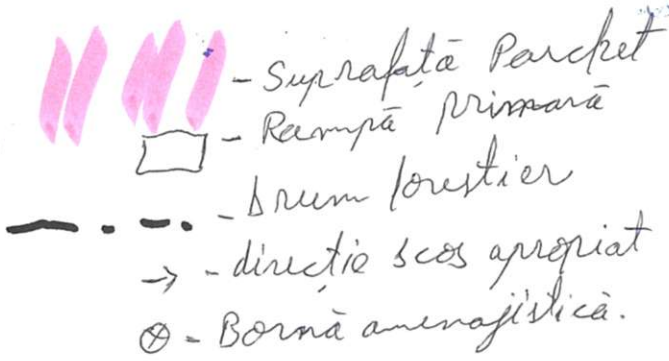 - Suprafață Parchet
- Rampă primară
- drum forestier
- direcție scos apropiat
- Bornă amenajistică.